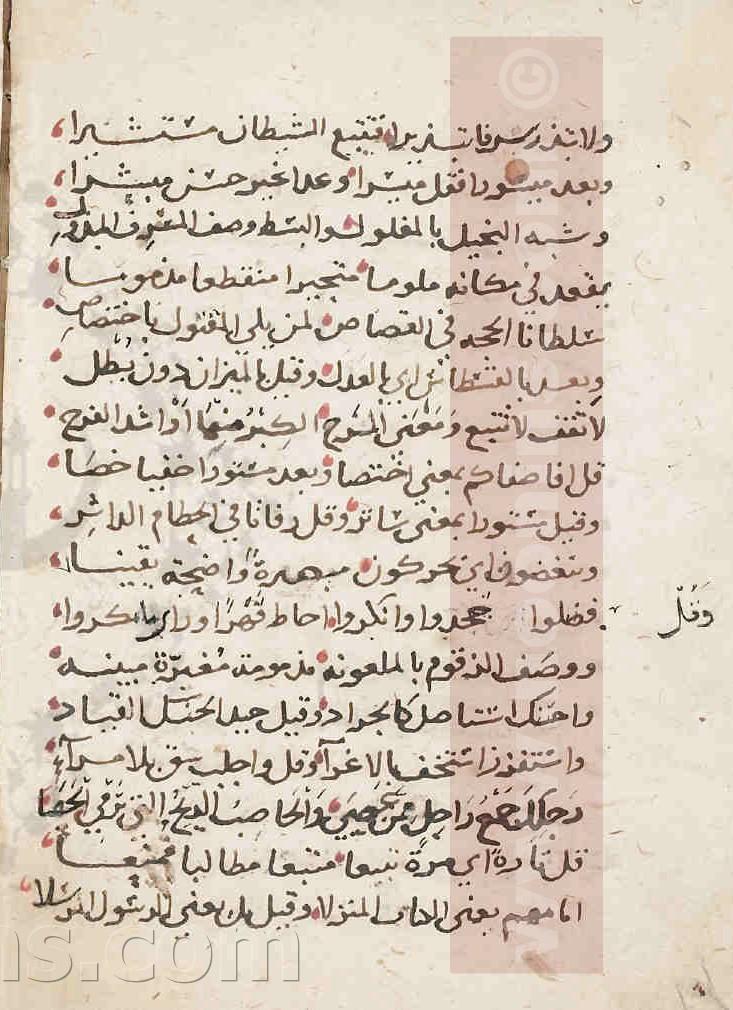 ولا تبذر سرفا تبذيرا فتتبع الشيطان مستشيرا
وبعد ميسورا فقل ميسرا وعدا غير حسن مبشرا
وشبه البخيل بالمغلول والبسط وصف المسرف المبذول
بمقعد في مكانه ملوما متحيرا منقطعا مذموما
سلطانا الحجه في القصاص لمن يلي المقتول باختصاص
وبعد بالقسطاس اي بالعدل وقيل بالميزان دون بطل
لا تقف لا تتبع ومعنى المرح الكبر منها او اشد الفرح
قل افاصفاكم بمعنى اختصا وبعد مستورا خفيا خصا
وقيل مستورا بمعنى ساتر وقل رفاتا في الحطام الداثر
وينغضون اي يحركون مبصرة واضحة يقينا
فظلوا جحدوا وانكروا احاط قهرا
وقل
ووصف الزقوم بالملعونه مذمومة مغبرة مبينه
واحتنك استاصل كالجراد وقيل جيد الحنك انقياد
واستفزز استخف بالاغراء وقل واجلب سق بلا مراء
رجلك جمع راجل ممن عصى والحاصب الريح التي ترمي الحصا
قل تارة اي مرة تبيعا متبعا مطالبا ممنعا
امامهم يعني الكتاب المنزلا وقيل بل يعني الرسول المرسلا
©
www.
ns.com